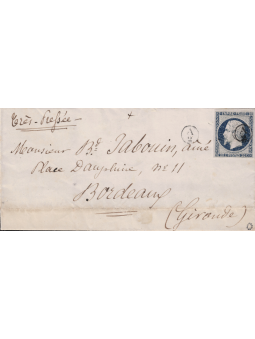 Très-Pressée
Monsieur Bd. Jabouin, aîné
Place Dauphine, no 11
Bordeaux
(Gironde)
EMPIRE FRANC
A